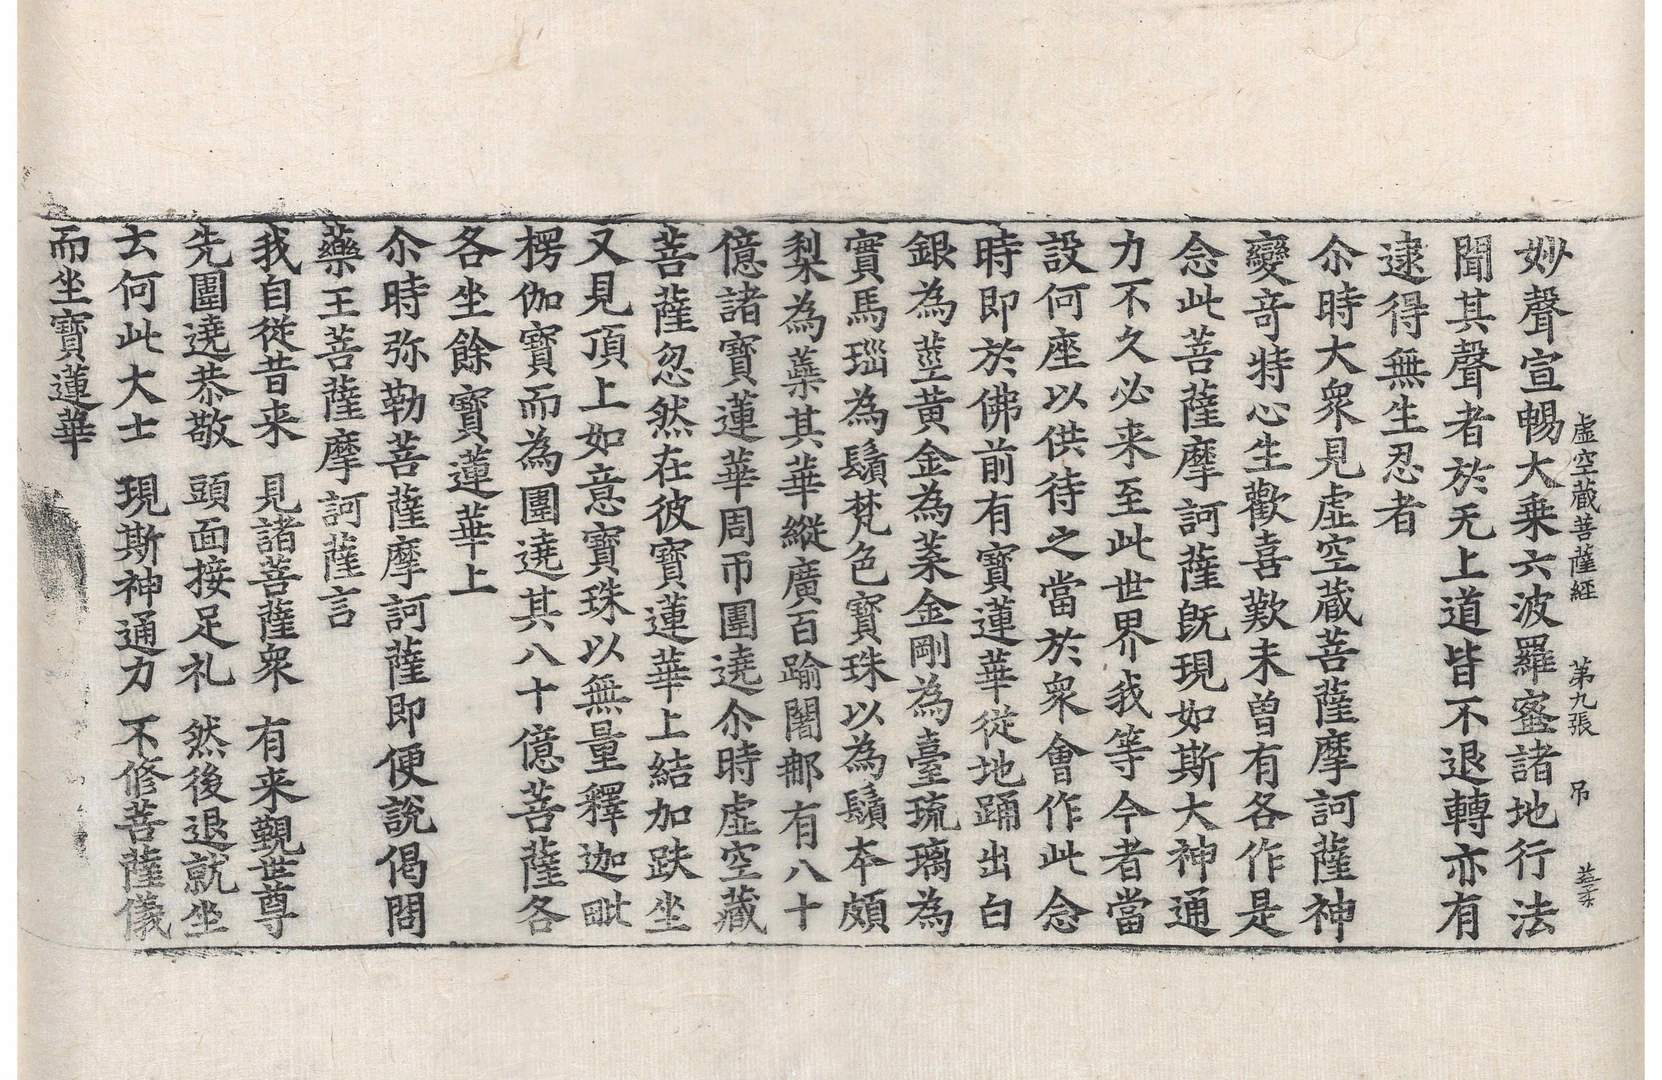 虛空藏菩薩經 第九張 吊
妙聲宣暢大乗六波羅蜜諸地行法
聞其聲者於无上道皆不退轉亦有
逮得無生忍者
尒時大衆見虛空藏菩薩摩訶薩神
變竒特心生歡喜歎未曾有各作是
念此菩薩摩訶薩旣現如斯大神通
力不久必来至此世界我等今者當
設何座以供待之當於衆會作此念
時即於佛前有寶蓮華従地踊出白
銀為莖黃金為葉金剛為臺琉璃為
實馬瑙為鬚梵色寶珠以為鬚本頗
梨為蘂其華縱廣百踰闍那有八十
億諸寶蓮華周帀圍遶尒時虛空藏
菩薩忽然在彼寶蓮華上結加趺坐
又見頂上如意寶珠以無量釋迦毗
楞伽寶而為圍遶其八十億菩薩各
各坐餘寶蓮華上
尒時弥勒菩薩摩訶薩即便說偈問
藥王菩薩摩訶薩言
我自従昔来 見諸菩薩衆 有来覲世尊
先圍遶恭敬 頭面接足礼 然後退就坐
云何此大士 現斯神通力 不修菩薩儀
而坐寶蓮華